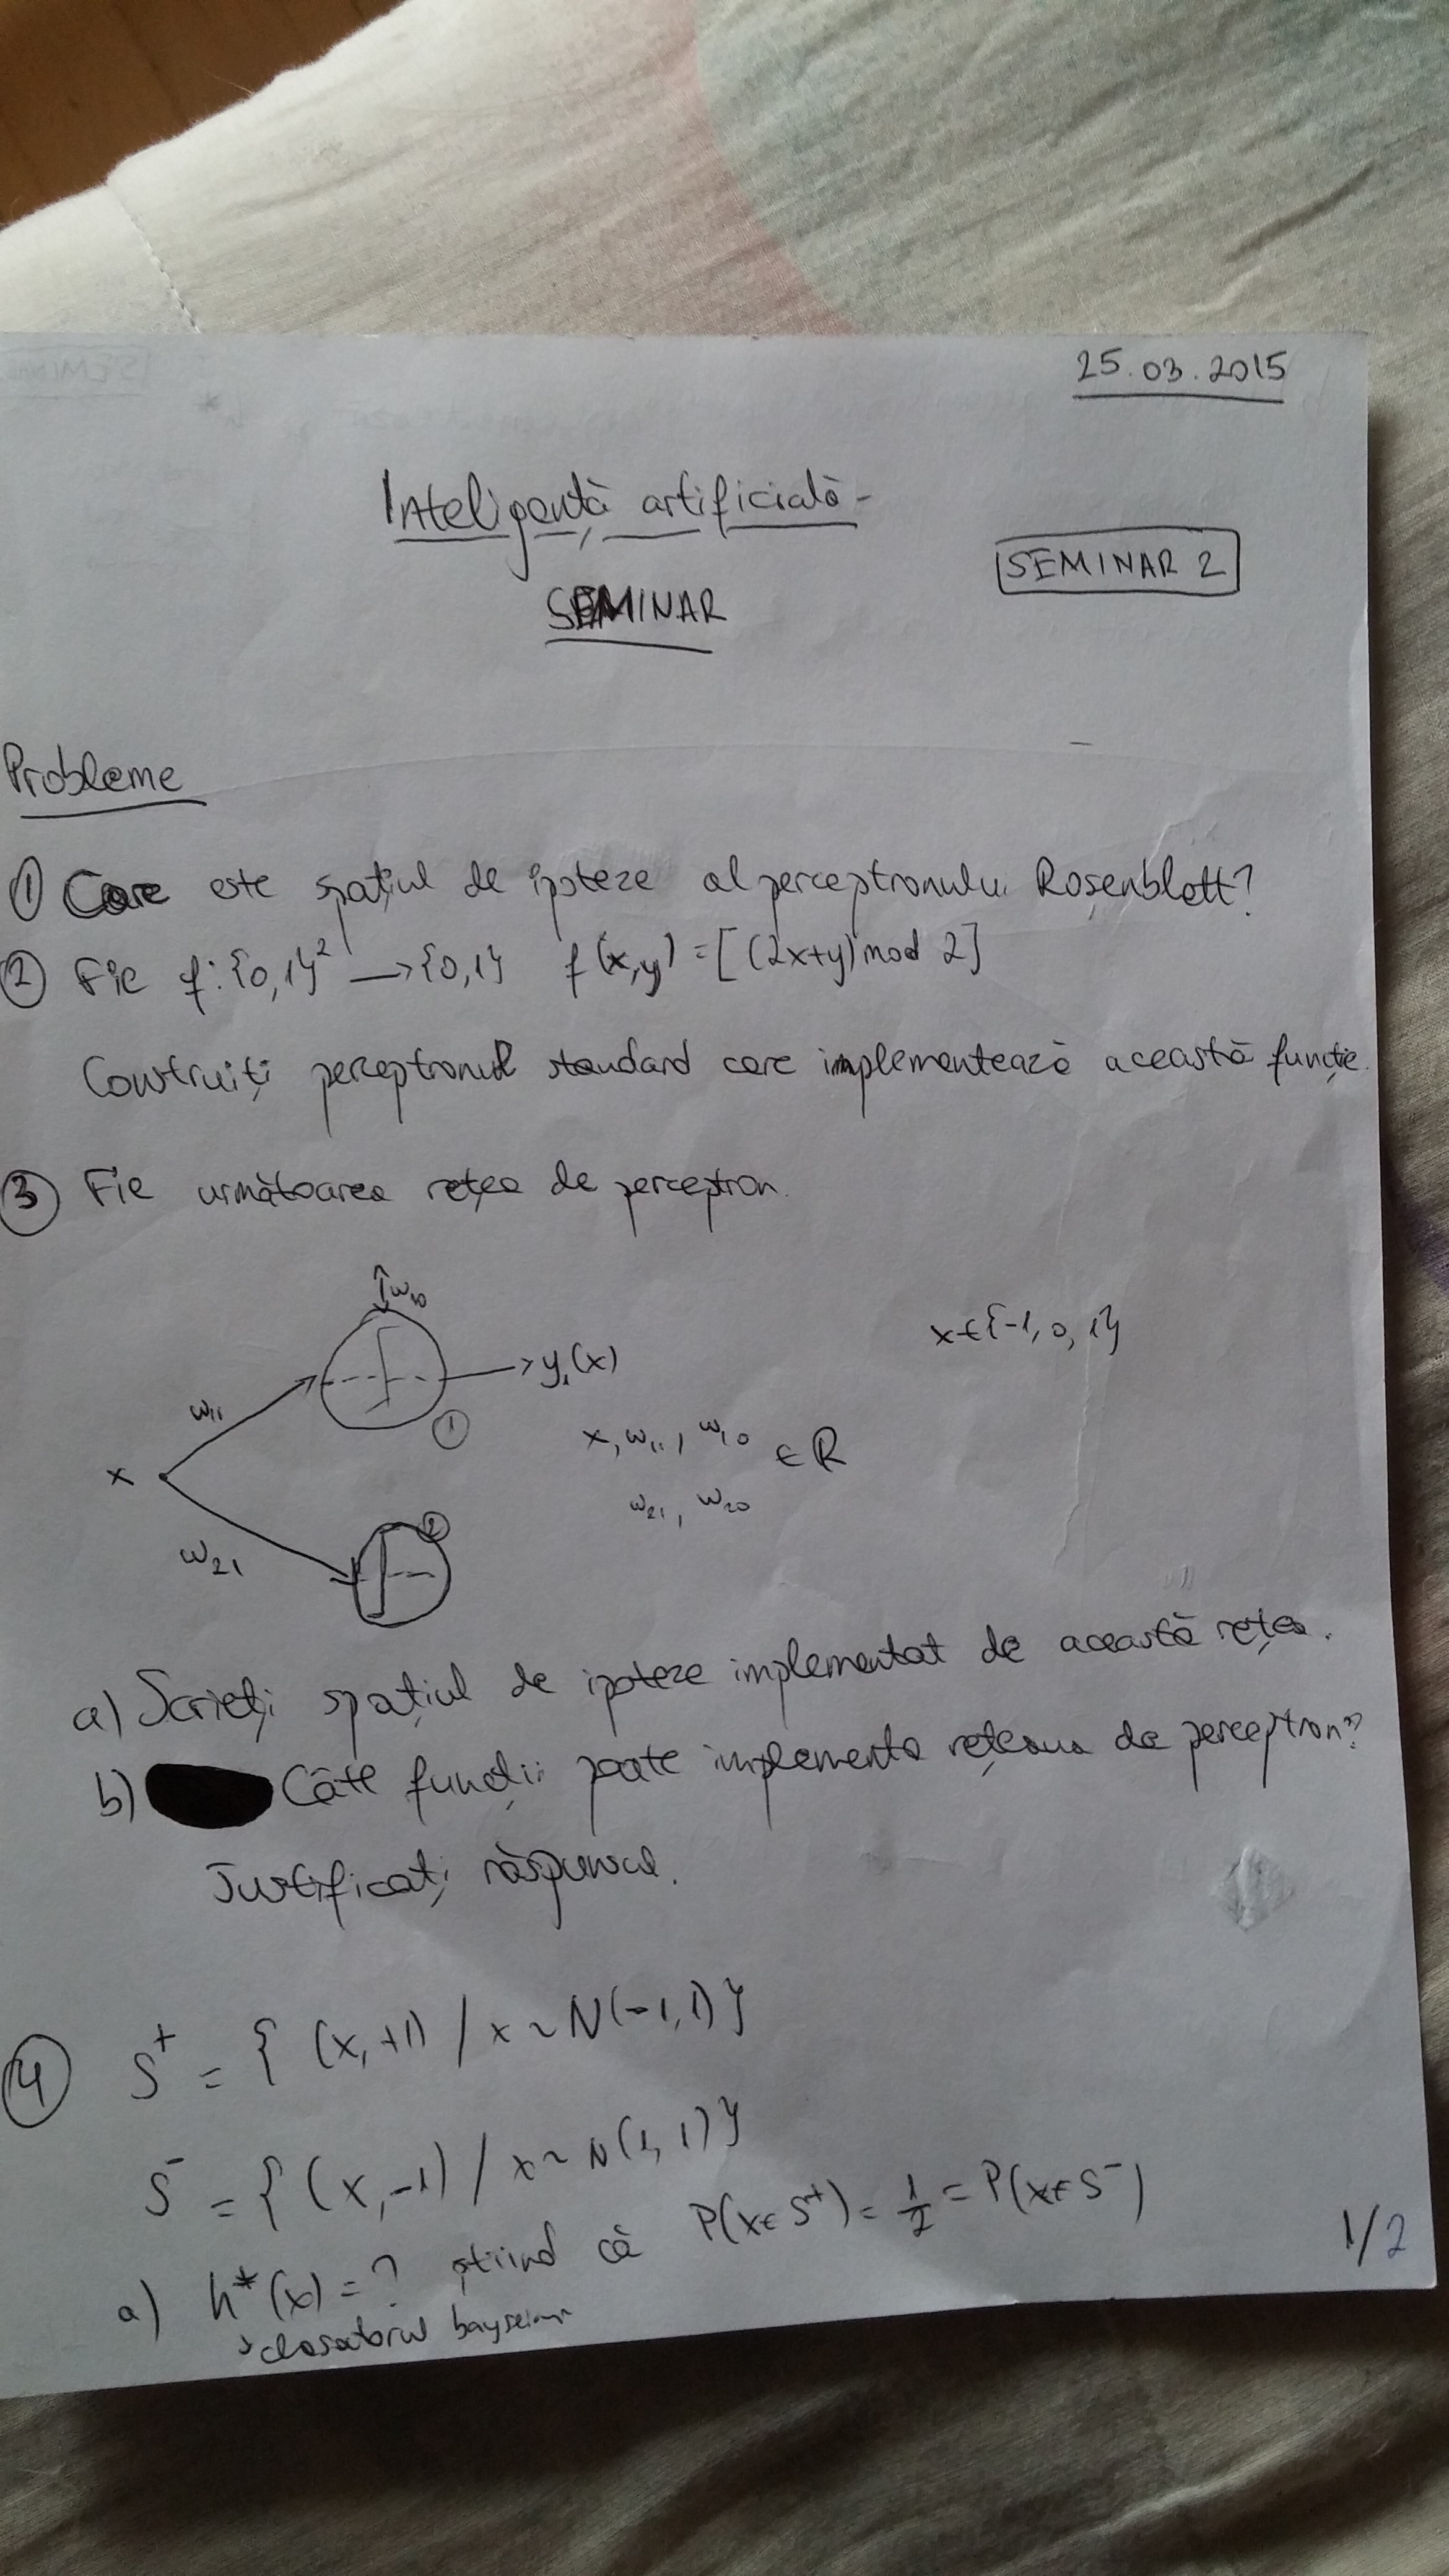 25.03.2015
Inteligență artificială -
SEMINAR 2
SEMINAR
Probleme
① Care este spațiul de ipoteze al perceptronului Rosenblatt?
② Fie f: {0,1}² → {0,1} f(x,y) = [(2x+y) mod 2]
Construiți perceptronul standard care implementează această funcție.
③ Fie următoarea rețea de perceptron.
w₁₀
x ∈ {-1, 0, 1}
y₁(x)
w₁₁
①
x, w₁₁, w₁₀ ∈ R
x
w₂₁, w₂₀
②
w₂₁
a) Scrieți spațiul de ipoteze implementat de această rețea.
b) Câte funcții poate implementa rețeaua de perceptron?
Justificați răspunsul.
④ S⁺ = { (x,+1) / x ~ N(-1,1) }
S⁻ = { (x,-1) / x ~ N(1,1) }
a) h*(x) = ? știind că P(x∈S⁺) = 1/2 = P(x∈S⁻)
clasatorul bayesian
1/2